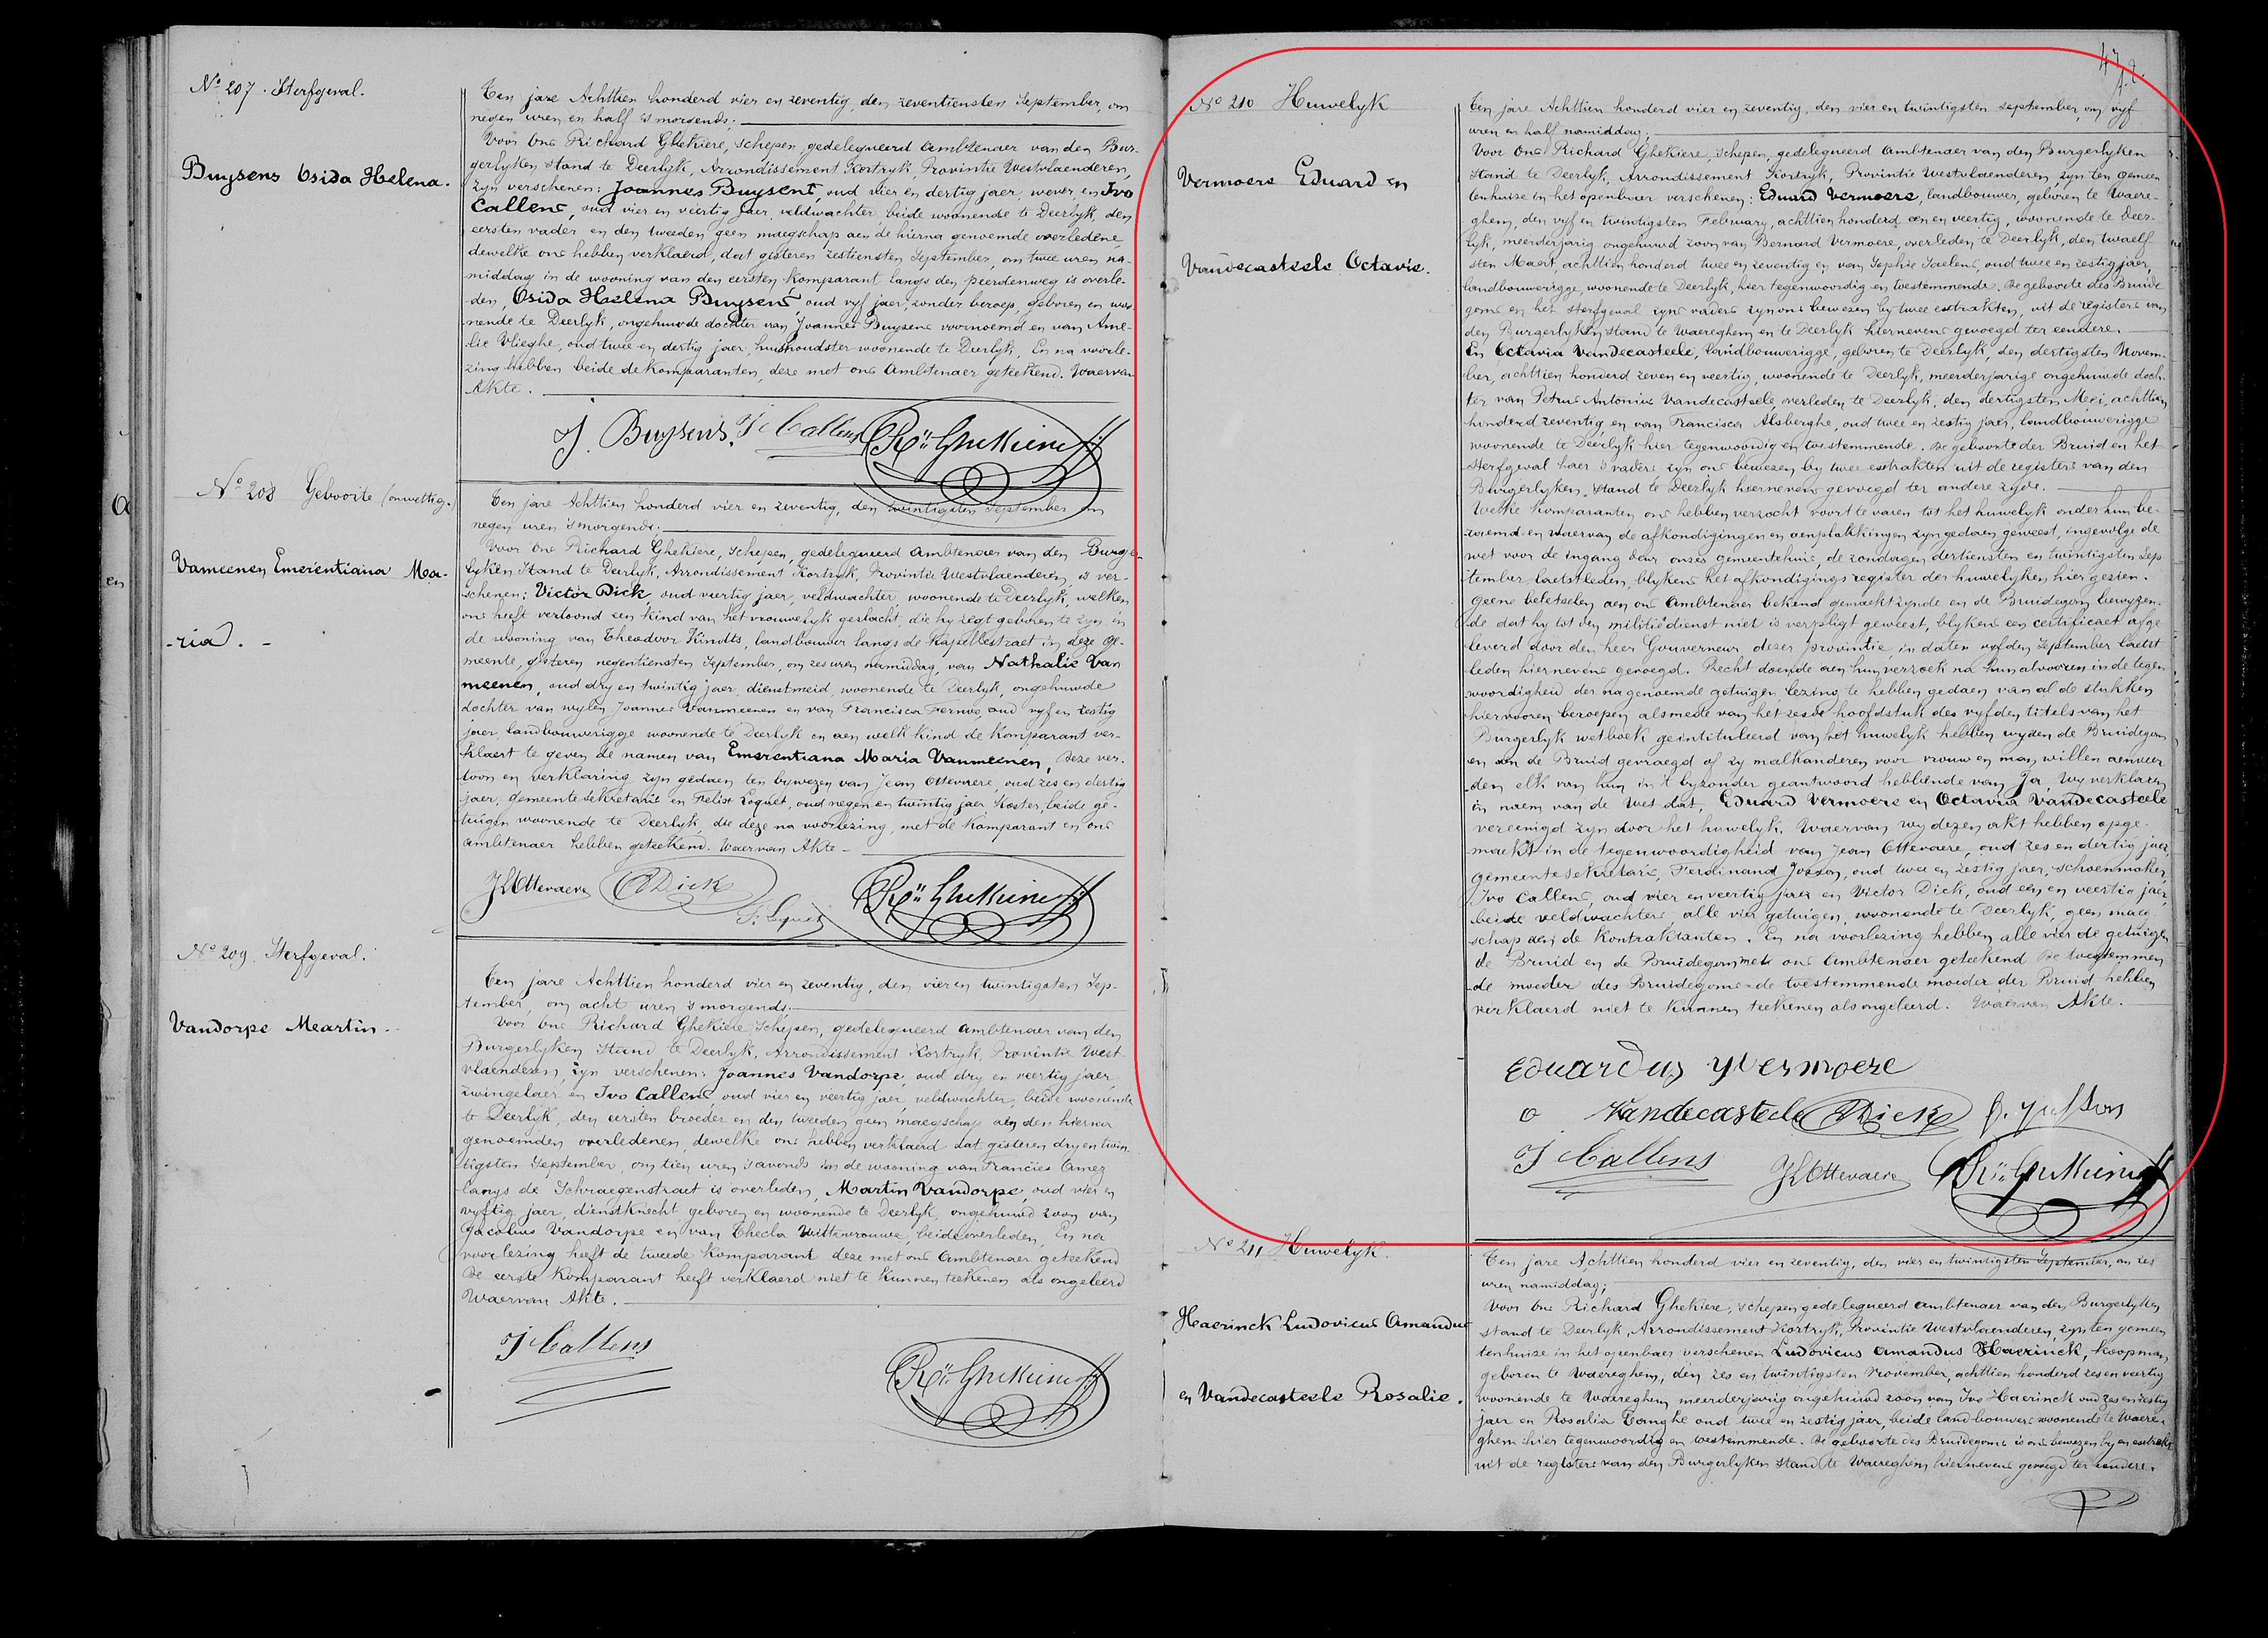 No 207. Sterfgeval.
Buysens Osida Helena.
Ten jare Achttien honderd vier en zeventig, den zeventiensten September, om
negen uren en half 's morgends;
Voor Ons Richard Ghekiere, schepen, gedelegueerd Ambtenaer van den Bur-
gerlyken stand te Deerlyk, Arrondissement Kortryk, Provintie Westvlaenderen,
zyn verschenen: Joannes Buysens, oud vier en dertig jaer, wever, en Ivo
Callens, oud vier en veertig jaer, veldwachter beide woonende te Deerlyk, den
eersten vader en den tweeden geen maegschap aen de hierna genoemde overledene,
dewelke ons hebben verklaerd, dat gisteren zestiensten September, om twee uren na-
middag in de wooning van den eersten komparant langs den peerdenweg is overle-
den, Osida Helena Buysens, oud vyf jaer, zonder beroep, geboren en woo-
nende te Deerlyk, ongehuwde dochter van Joannes Buysens voornoemd en van Ame-
lie Vlieghe, oud twee en dertig jaer, huishoudster woonende te Deerlyk. En na voorle-
zing hebben beide de komparanten, deze met ons Ambtenaer geteekend. Waervan
Akte.
J. Buysens. I Callens Rd Ghekiere
No 208 Geboorte (onwettig.
Vanmeenen Emerentiana Ma-
-ria. -
Ten jare Achttien honderd vier en zeventig, den twintigsten September om
negen uren 's morgends;
Voor Ons Richard Ghekiere, Schepen, gedelegueerd Ambtenaer van den Burger-
lyken Stand te Deerlyk, Arrondissement Kortryk, Provintie Westvlaenderen, is ver-
schenen: Victor Dick, oud veertig jaer, veldwachter, woonende te Deerlyk, welken
ons heeft vertoond een kind van het vrouwelyk geslacht, die hy zegt geboren te zyn in
de wooning van Theodoor Kindts, landbouwer langs de Kapellestraet in deze Ge-
meente, gisteren negentiensten September, om zes uren namiddag, van Nathalie Van
meenen, oud dry en twintig jaer, dienstmeid, woonende te Deerlyk, ongehuwde
dochter van wylen Joannes Vanmeenen en van Francisca, oud vyf en zestig
jaer, landbouwerigge woonende te Deerlyk en aen welk kind de komparant ver-
klaert te geven de namen van Emerentiana Maria Vanmeenen. Deze ver-
toon en verklaring zyn gedaen ten bywezen van Jean Ottevaere, oud zes en dertig
jaer, gemeentesekretaris en Felix Loquet, oud negen en twintig jaer Koster, beide ge-
tuigen woonende te Deerlyk, die deze na voorlezing, met de komparant en ons
Ambtenaer hebben geteekend. Waervan Akte -
JL Ottevaere VDick
F. Loquet Rd Ghekiere
No 209. Sterfgeval.
Vandorpe Meartin -
Ten jare Achttien honderd vier en zeventig, den vier en twintigsten Sep-
tember, om acht uren 's morgends;
Voor Ons Richard Ghekiere Schepen, gedelegueerd Ambtenaer van den
Burgerlyken Stand te Deerlyk, Arrondissement Kortryk, Provintie West-
vlaenderen, zyn verschenen: Joannes Vandorpe, oud dry en veertig jaer,
zwingelaer en Ivo Callens oud vier en veertig jaer, veldwachter, beide woonende
te Deerlyk, den eersten broeder en den tweeden geen maegschap aen den hierna
genoemden overledenen, dewelke ons hebben verklaerd dat gisteren dry en twin-
tigsten September, om tien uren 's avonds in de wooning van Francies Amez
langs de Schraegenstraet is overleden, Martin Vandorpe, oud vier en
vyftig jaer, dienstknecht geboren en woonende te Deerlyk, ongehuwd zoon van
Jacobus Vandorpe en van Thecla Wittevrouwe, beide overleden. En na
voorlezing heeft de tweede komparant deze met ons Ambtenaer geteekend
De eerste komparant heeft verklaerd niet te kunnen teekenen als ongeleerd
Waervan Akte.
I Callens Rd Ghekiere
No 210 Huwelyk
Vermoere Eduard en
Vandecasteele Octavie.
Ten jare Achttien honderd vier en zeventig, den vier en twintigsten September, om vyf
uren en half namiddag;
Voor Ons Richard Ghekiere, Schepen, gedelegueerd Ambtenaer van den Burgerlyken
Stand te Deerlyk, Arrondissement Kortryk, Provintie Westvlaenderen, zyn ten gemeen
tenhuize in het openbaer verschenen: Eduard Vermoere, landbouwer, geboren te Waere-
ghem, den vyf en twintigsten February, achttien honderd een en veertig, woonende te Deer-
lyk, meerderjarig ongehuwd zoon van Bernard Vermoere, overleden te Deerlyk, den twaelf
sten Maert, achttien honderd twee en zeventig en van Sophie Saelens, oud twee en zestig jaer,
landbouwerigge, woonende te Deerlyk, hier tegenwoordig en toestemmende. De geboorte des Bruide
goms en het sterfgeval zyns vaders zyn ons bewezen by twee extrakten, uit de registers van
den Burgerlyken stand te Waereghem en te Deerlyk hiernevens gevoegd ter eendere.
En Octavia Vandecasteele, landbouwerigge, geboren te Deerlyk, den dertigsten Novem-
ber, achttien honderd zeven en veertig, woonende te Deerlyk, meerderjarige ongehuwde doch-
ter van Petrus Antonius Vandecasteele, overleden te Deerlyk, den dertigsten Mei, achttien
honderd zeventig en van Francisca Alsberghe, oud twee en zestig jaer, landbouwerigge
woonende te Deerlyk hier tegenwoordig en toestemmende. De geboorte der Bruid en het
Sterfgeval haer's vaders zyn ons bewezen by twee extrakten uit de registers van den
Burgerlyken Stand te Deerlyk hiernevens gevoegd ter andere zyde.
Welke komparanten ons hebben verzocht voort te varen tot het huwelyk onder hun be-
raemd en waervan de afkondigingen en aenplakkingen zyn gedaen geweest, ingevolge de
wet voor de ingang deur onzes gemeentehuis, de zondagen dertiensten en twintigsten Sep
tember laetstleden, blykens het afkondigings register der huwelyken hier gezien.
Geene beletselen aen ons Ambtenaer bekend gemaekt zynde en de Bruidegom bewyzen-
de dat hy tot den militiedienst niet is verpligt geweest, blykens een certificaet afge
leverd door den heer Gouverneur dezer provintie in daten vyfden September laetst
leden hiernevens gevoegd. Recht doende aen hun verzoek na hun alvooren in de tegen
woordigheid der nagenoemde getuigen lezing te hebben gedaen van al de stukken
hiervooren beroepen alsmede van het zesde hoofdstuk des vyfden titels van het
Burgerlyk wetboek geintituleerd van het huwelyk hebben wy den de Bruidegom
en aen de Bruid gevraegd of zy malkanderen voor vrouw en man willen aenveer
den elk van hun in 't byzonder geantwoord hebbende van Ja, Wy verklaren
in naem van de Wet dat, Eduard Vermoere en Octavia Vandecasteele
vereenigd zyn door het huwelyk. Waervan wy dezen akt hebben opge-
maekt in de tegenwoordigheid van Jean Ottevaere, oud zes en dertig jaer,
gemeentesekretaris, Ferdinand Josson, oud twee en zestig jaer, schoenmaker,
Ivo Callens, oud vier en veertig jaer en Victor Dick, oud een en veertig jaer
beide veldwachters, alle vier getuigen, woonende te Deerlyk, geen maeg-
schap den de kontraktanten. En na voorlezing hebben alle vier de getuigen
de Bruid en de Bruidegom met ons Ambtenaer geteekend De toestemmen
de moeder des Bruidegoms de toestemmende moeder der Bruid hebben
verklaerd niet te kunnen teekenen als ongeleerd. Waervan Akte.
Eduardus Vermoere
o Vandecasteele VDick f. jusson
I Callens JL Ottevaere Rd Ghekiere
No 211 Huwelyk.
Haerinck Ludovicus Amandus
en Vandecasteele Rosalie.
Ten jare Achttien honderd vier en zeventig, den vier en twintigsten September, om zes
uren namiddag;
Voor Ons Richard Ghekiere, Schepen gedelegueerd Ambtenaer van den Burgerlyken
stand te Deerlyk, Arrondissement Kortryk, Provintie Westvlaenderen, zyn ten gemeen
tenhuize in het openbaer verschenen Ludovicus Amandus Haerinck, koopman,
geboren te Waereghem, den zes en twintigsten November, achttien honderd zes en veertig
woonende te Waereghem meerderjarig ongehuwd zoon van Ivo Haerinck oud zes en zestig
jaer en Rosalia Tanghe oud twee en zestig jaer, beide landbouwers woonende te Waere-
ghem hier tegenwoordig en toestemmende. De geboorte des Bruidegoms is ons bewezen by een extrakt
uit de registers van den Burgerlyken stand te Waereghem hiernevens gevoegd ter eendere.